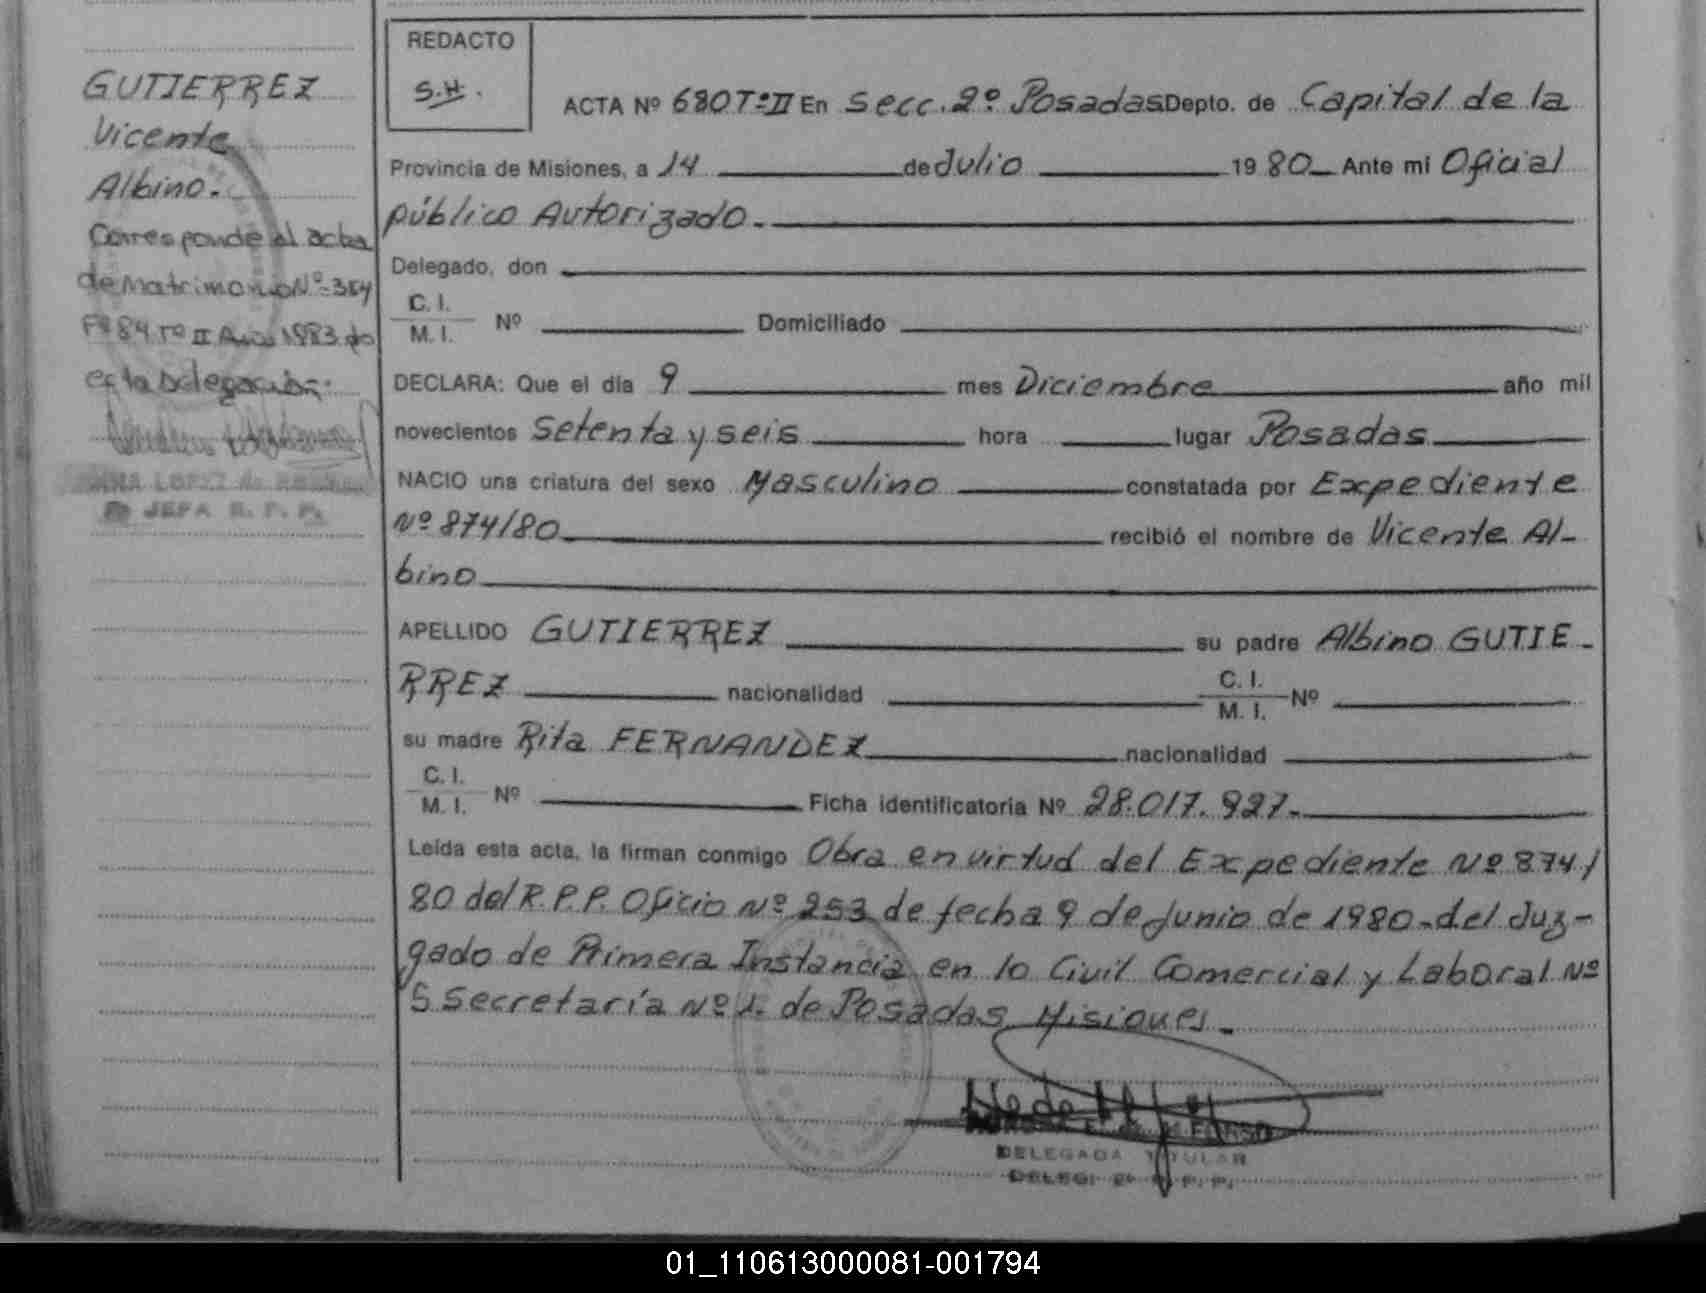 REDACTO
S.H.
GUTIERREZ
Vicente
Albino.
Corresponde al acta
de Matrimonio Nº 354
Fº 84 Tº II Año 1983 de
esta Delegación.
JEFA R. P. P.
ACTA Nº 680 Tº II En Secc. 2º Posadas Depto. de Capital de la
Provincia de Misiones, a 14 de Julio 1980 Ante mi Oficial
público Autorizado.
Delegado, don
C. I.
M. I. Nº Domiciliado
DECLARA: Que el día 9 mes Diciembre año mil
novecientos Setenta y seis hora lugar Posadas
NACIO una criatura del sexo Masculino constatada por Expediente
Nº 874/80 recibió el nombre de Vicente Al-
bino
APELLIDO GUTIERREZ su padre Albino GUTIE-
RREZ nacionalidad C. I.
M. I. Nº
su madre Rita FERNANDEZ nacionalidad
C. I.
M. I. Nº Ficha identificatoria Nº 28.017.927.
Leída esta acta, la firman conmigo Obra en virtud del Expediente Nº 874/
80 del R.P.P. Oficio Nº 253 de fecha 9 de Junio de 1980-del Juz-
gado de Primera Instancia en lo Civil Comercial y Laboral Nº
5 Secretaría Nº 1. de Posadas Misiones.
DELEGADA TITULAR
DELEG. 2ª R. P. P.
01_110613000081-001794